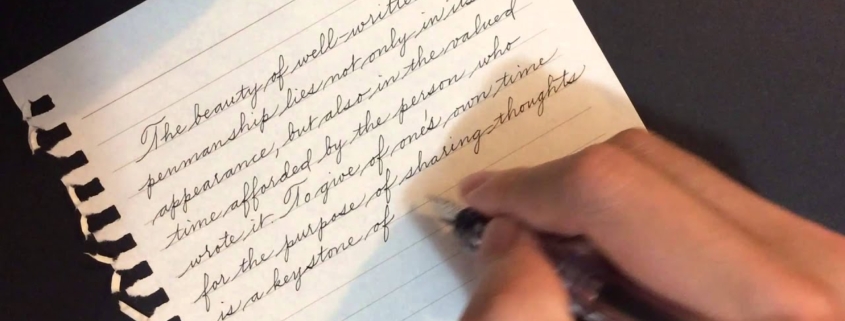 The beauty of well-written
penmanship lies not only in its
appearance, but also in the valued
time afforded by the person who
wrote it. To give of one's own time
for the purpose of sharing thoughts
is a keystone of